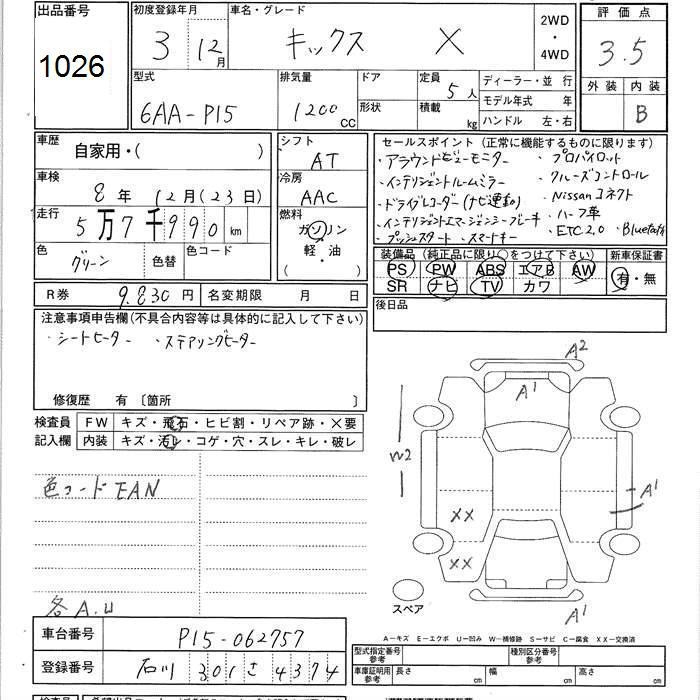 出品番号 1026
初度登録年月 3 12月
車名・グレード キックス X
2WD・4WD
評価点 3.5
型式 6AA-P15
排気量 1200 CC
ドア 形状
定員 5人
積載 kg
ディーラー・並 行
モデル年式 年
ハンドル 左・右
外装 内装 B
車歴 自家用・( )
シフト AT
車検 8年 12月(23日)
冷房 AAC
走行 5万7千990km
燃料 ガソリン
軽・油
( )
色 グリーン 色替 色コード
R券 9.830円 名変期限 月 日
セールスポイント(正常に機能するものに限ります)
・アラウンドビューモニター ・プロパイロット
・インテリジェントルームミラー ・クルーズコントロール
・ドライブレコーダー(ナビ連動) ・Nissanコネクト
・インテリジェントエマージェンシーブレーキ ・ハーフ革
・プッシュスタート ・スマートキー ・ETC2.0 ・Bluetooth
装備品(純正品に限り○をつけて下さい) 新車保証書
PS PW ABS エアB AW 有・無
SR ナビ TV カワ
後日品
注意事項申告欄(不具合内容等は具体的に記入して下さい)
・シートヒーター ・ステアリングヒーター
修復歴 有〔箇所 〕
検査員 FW キズ・飛石・ヒビ割・リペア跡・X要
記入欄 内装 キズ・汚レ・コゲ・穴・スレ・キレ・破レ
色コード EAN
各A.U
A2
A1
W2
A1
XX
XX
A1
スペア
A-キズ E-エクボ U-凹み W-補修跡 S-サビ C-腐食 XX-交換済
車台番号 P15-062757
登録番号 石川 301 さ 4374
型式指定番号 参考 種別区分番号 参考
車庫証明用 参考 長さ cm 幅 cm 高さ cm
検査員